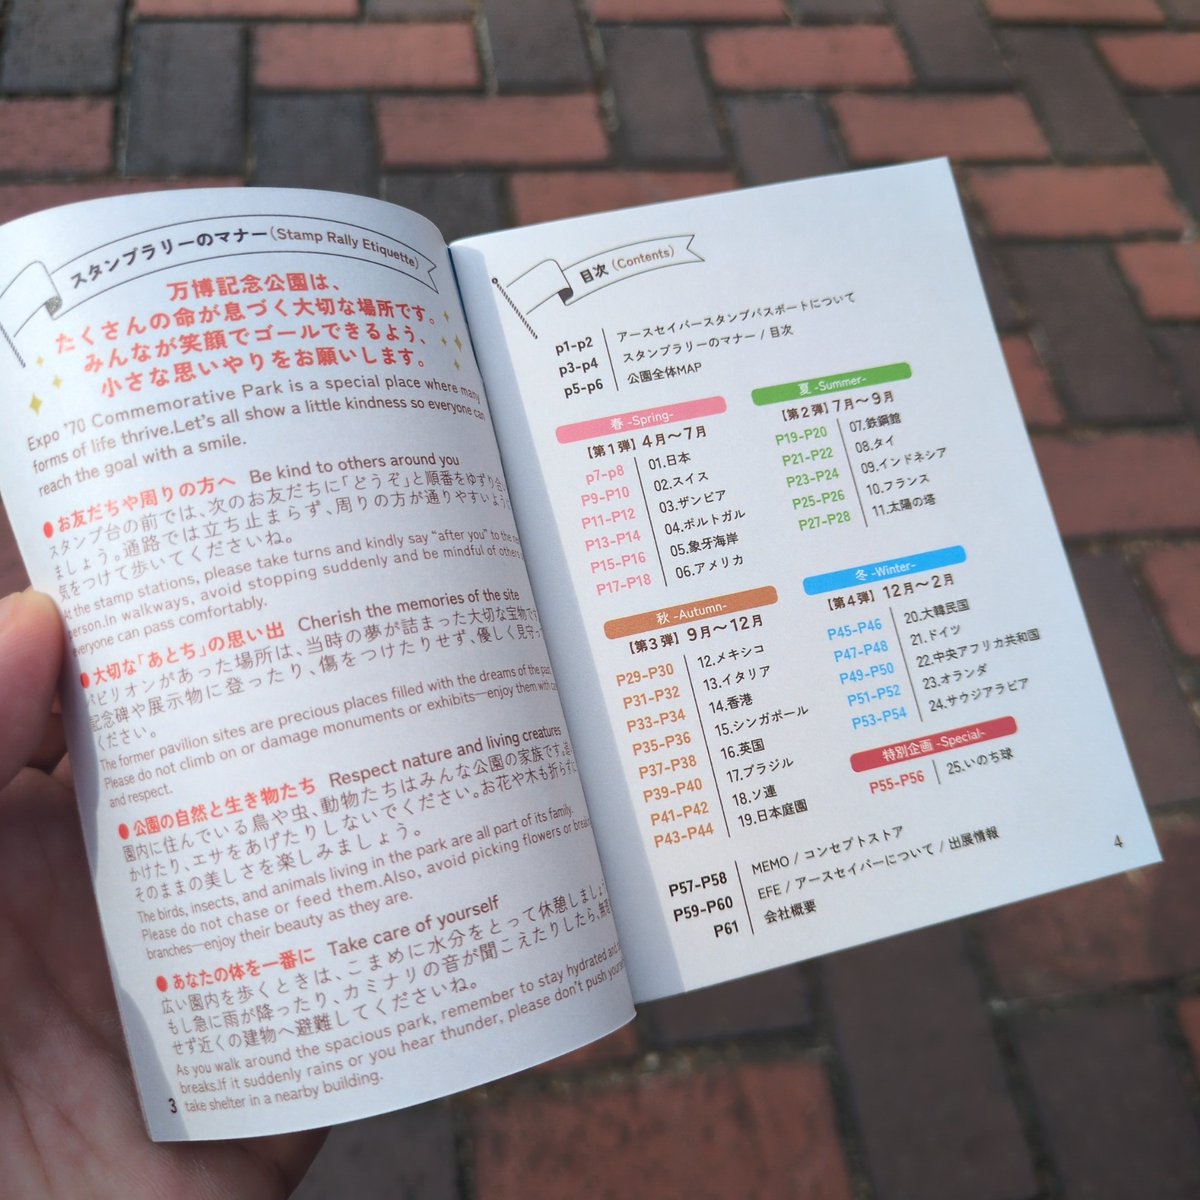 スタンプラリーのマナー(Stamp Rally Etiquette)
万博記念公園は、
たくさんの命が息づく大切な場所です。
みんなが笑顔でゴールできるよう、
小さな思いやりをお願いします。
Expo '70 Commemorative Park is a special place where many
forms of life thrive.Let's all show a little kindness so everyone can
reach the goal with a smile.
●お友だちや周りの方へ Be kind to others around you
スタンプ台の前では、次のお友だちに「どうぞ」と順番をゆずり合い
ましょう。通路では立ち止まらず、周りの方が通りやすいよう
気をつけて歩いてくださいね。
At the stamp stations, please take turns and kindly say "after you" to the
person.In walkways, avoid stopping suddenly and be mindful of others
everyone can pass comfortably.
●大切な「あとち」の思い出 Cherish the memories of the site
パビリオンがあった場所は、当時の夢が詰まった大切な宝物です
記念碑や展示物に登ったり、傷をつけたりせず、優しく見守っ
ください。
The former pavilion sites are precious places filled with the dreams of the past.
Please do not climb on or damage monuments or exhibits—enjoy them with
and respect.
●公園の自然と生き物たち Respect nature and living creatures
園内に住んでいる鳥や虫、動物たちはみんな公園の家族です。
かけたり、エサをあげたりしないでください。お花や木も折らずに
そのままの美しさを楽しみましょう。
The birds, insects, and animals living in the park are all part of its family.
Please do not chase or feed them.Also, avoid picking flowers or
branches—enjoy their beauty as they are.
●あなたの体を一番に Take care of yourself
広い園内を歩くときは、こまめに水分をとって休憩しましょう
もし急に雨が降ったり、カミナリの音が聞こえたりしたら、
せず近くの建物へ避難してくださいね。
As you walk around the spacious park, remember to stay hydrated and
breaks.If it suddenly rains or you hear thunder, please don't push
take shelter in a nearby building.
3
目次(Contents)
p1-p2 アースセイバースタンプパスポートについて
p3-p4 スタンプラリーのマナー / 目次
p5-p6 公園全体MAP
春 -Spring-
【第1弾】4月〜7月
p7-p8 01.日本
P9-P10 02.スイス
P11-P12 03.ザンビア
P13-P14 04.ポルトガル
P15-P16 05.象牙海岸
P17-P18 06.アメリカ
夏 -Summer-
【第2弾】7月〜9月
P19-P20 07.鉄鋼館
P21-P22 08.タイ
P23-P24 09.インドネシア
P25-P26 10.フランス
P27-P28 11.太陽の塔
秋 -Autumn-
【第3弾】9月〜12月
P29-P30 12.メキシコ
P31-P32 13.イタリア
P33-P34 14.香港
P35-P36 15.シンガポール
P37-P38 16.英国
P39-P40 17.ブラジル
P41-P42 18.ソ連
P43-P44 19.日本庭園
冬 -Winter-
【第4弾】12月〜2月
P45-P46 20.大韓民国
P47-P48 21.ドイツ
P49-P50 22.中央アフリカ共和国
P51-P52 23.オランダ
P53-P54 24.サウジアラビア
特別企画 -Special-
P55-P56 25.いのち球
P57-P58 MEMO / コンセプトストア
P59-P60 EFE / アースセイバーについて / 出展情報
P61 会社概要
4